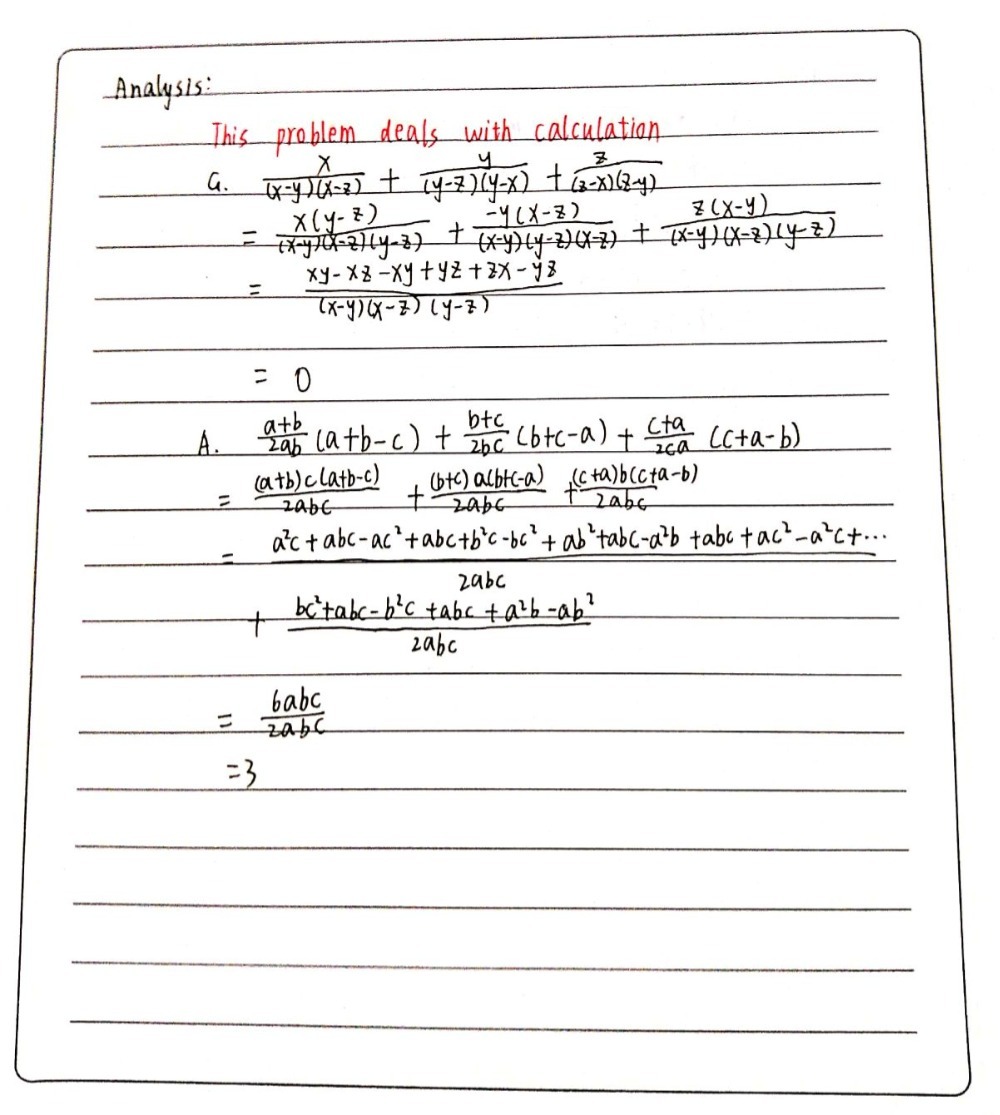 Analysis:
This problem deals with calculation
G. x/((x-y)(x-z)) + y/((y-z)(y-x)) + z/((z-x)(z-y))
= x(y-z)/((x-y)(x-z)(y-z)) + -y(x-z)/((x-y)(y-z)(x-z)) + z(x-y)/((x-y)(x-z)(y-z))
= (xy-xz-xy+yz+zx-yz)/((x-y)(x-z)(y-z))
= 0
A. (a+b)/(2ab) (a+b-c) + (b+c)/(2bc) (b+c-a) + (c+a)/(2ca) (c+a-b)
= (a+b)c(a+b-c)/(2abc) + (b+c)a(b+c-a)/(2abc) + (c+a)b(c+a-b)/(2abc)
= (a²c+abc-ac²+abc+b²c-bc²+ab²+abc-a²b+abc+ac²-a²c+...)/(2abc)
+ (bc²+abc-b²c+abc+a²b-ab²)/(2abc)
= 6abc/(2abc)
=3